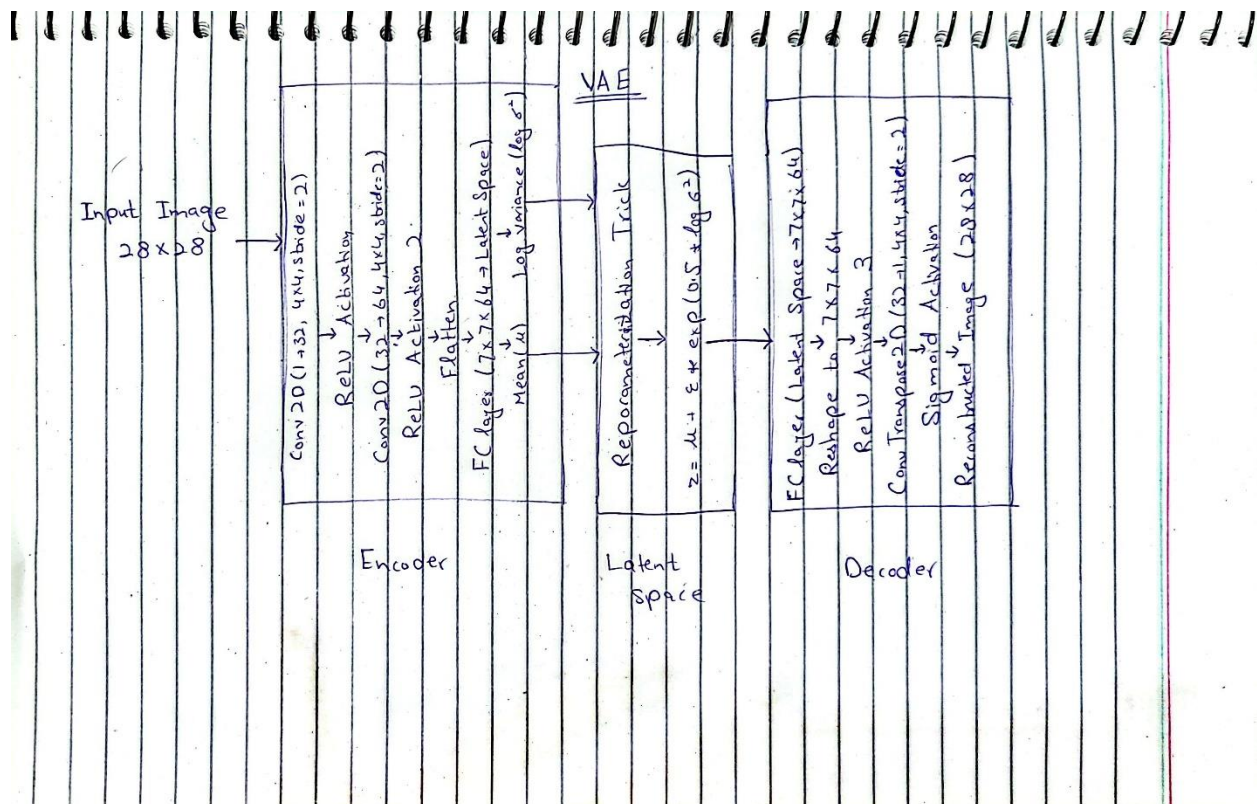 VAE
Input Image
28x28
Conv2D(1→32, 4x4, stride=2)
ReLU Activation
Conv2D(32→64, 4x4, stride=2)
ReLU Activation 2
Flatten
FC layer (7x7x64→Latent Space)
Mean(μ) Log Variance (log σ²)
Encoder
Reparameterization Trick
z = μ + ε * exp(0.5 * log σ²)
Latent
Space
FC layer (Latent Space→7x7x64)
Reshape to 7x7x64
ReLU Activation 3
ConvTranspose2D(32→1, 4x4, stride=2)
Sigmoid Activation
Reconstructed Image (28x28)
Decoder